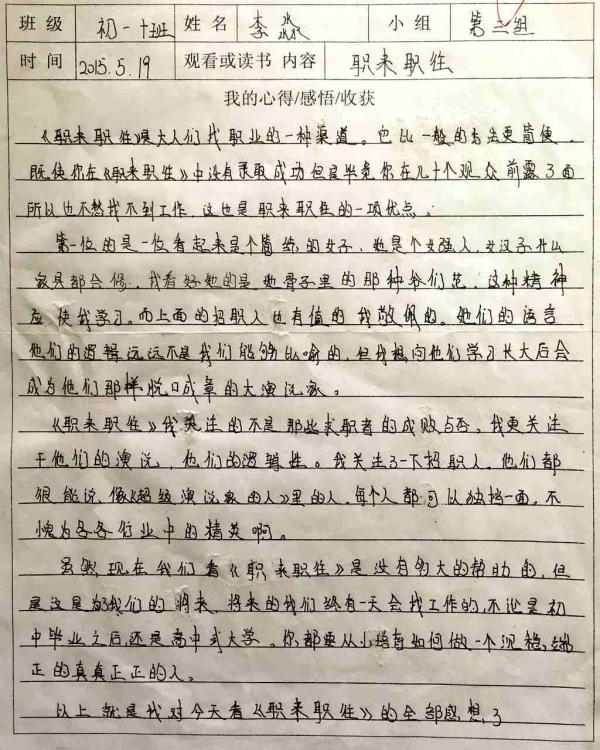 班级 初一十班 姓名 李淼 小组 第三组
时间 2015.5.19 观看或读书内容 职来职往
我的心得/感悟/收获
《职来职往》是大人们找职业的一种渠道。它比一般的方法更简便,
既使你在《职来职往》中没有录取成功但是毕竟你在几十个观众前露了面
所以也不愁找不到工作,这也是职来职往的一项优点。
第一位的是一位看起来是个简练的女子,她是个女强人,女汉子什么
家具都会修,我看好她的是她骨子里的那种爷们范,这种精神
应使我学习。而上面的招职人也有值的我敬佩的。她们的语言
他们的逻辑远远不是我们能够比喻的,但我想向他们学习长大后会
成为他们那样脱口成章的大演说家。
《职来职往》我关注的不是那些求职者的成败与否,我更关注
于他们的演说,他们的逻辑性。我关注了一下招职人。他们都
很能说,像《超级演说家的人》里的人,每个人都可以独挡一面,不
愧为各各行业中的精英啊。
虽然,现在我们看《职来职往》是没有多大的帮助的,但
是这是为我们的将来,将来的我们终有一天会找工作的,不论是初
中毕业之后,还是高中或大学。你都要从小培育如何做一个沉稳,端
正的真真正正的人。
以上就是我对今天看《职来职往》的全部感想了